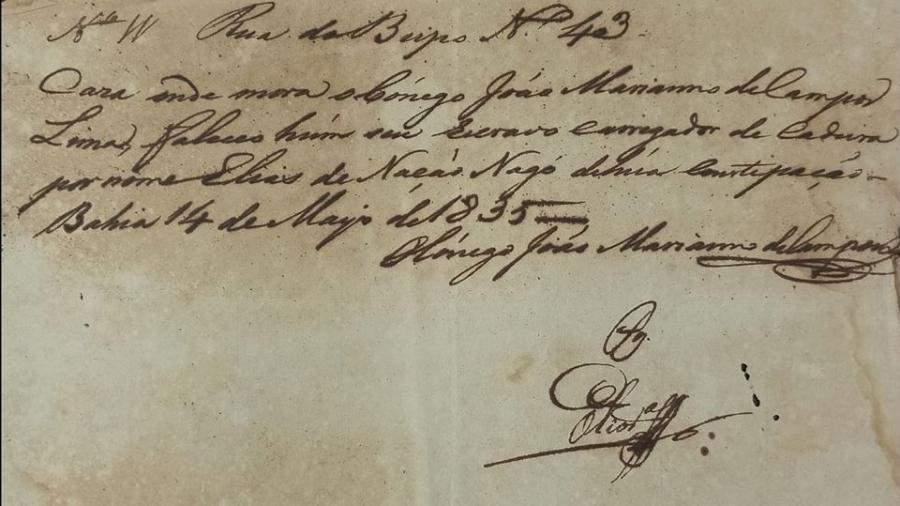 Rua do Bispo N.º 43
Caza onde mora o Cónego João Marianno de Campos
Lima, faleceo húm seu escravo carregador de cadeira
por nome Elias de Nação Nagô de húa constipação
Bahia 14 de Mayo de 1835
O Cónego João Marianno de Campos